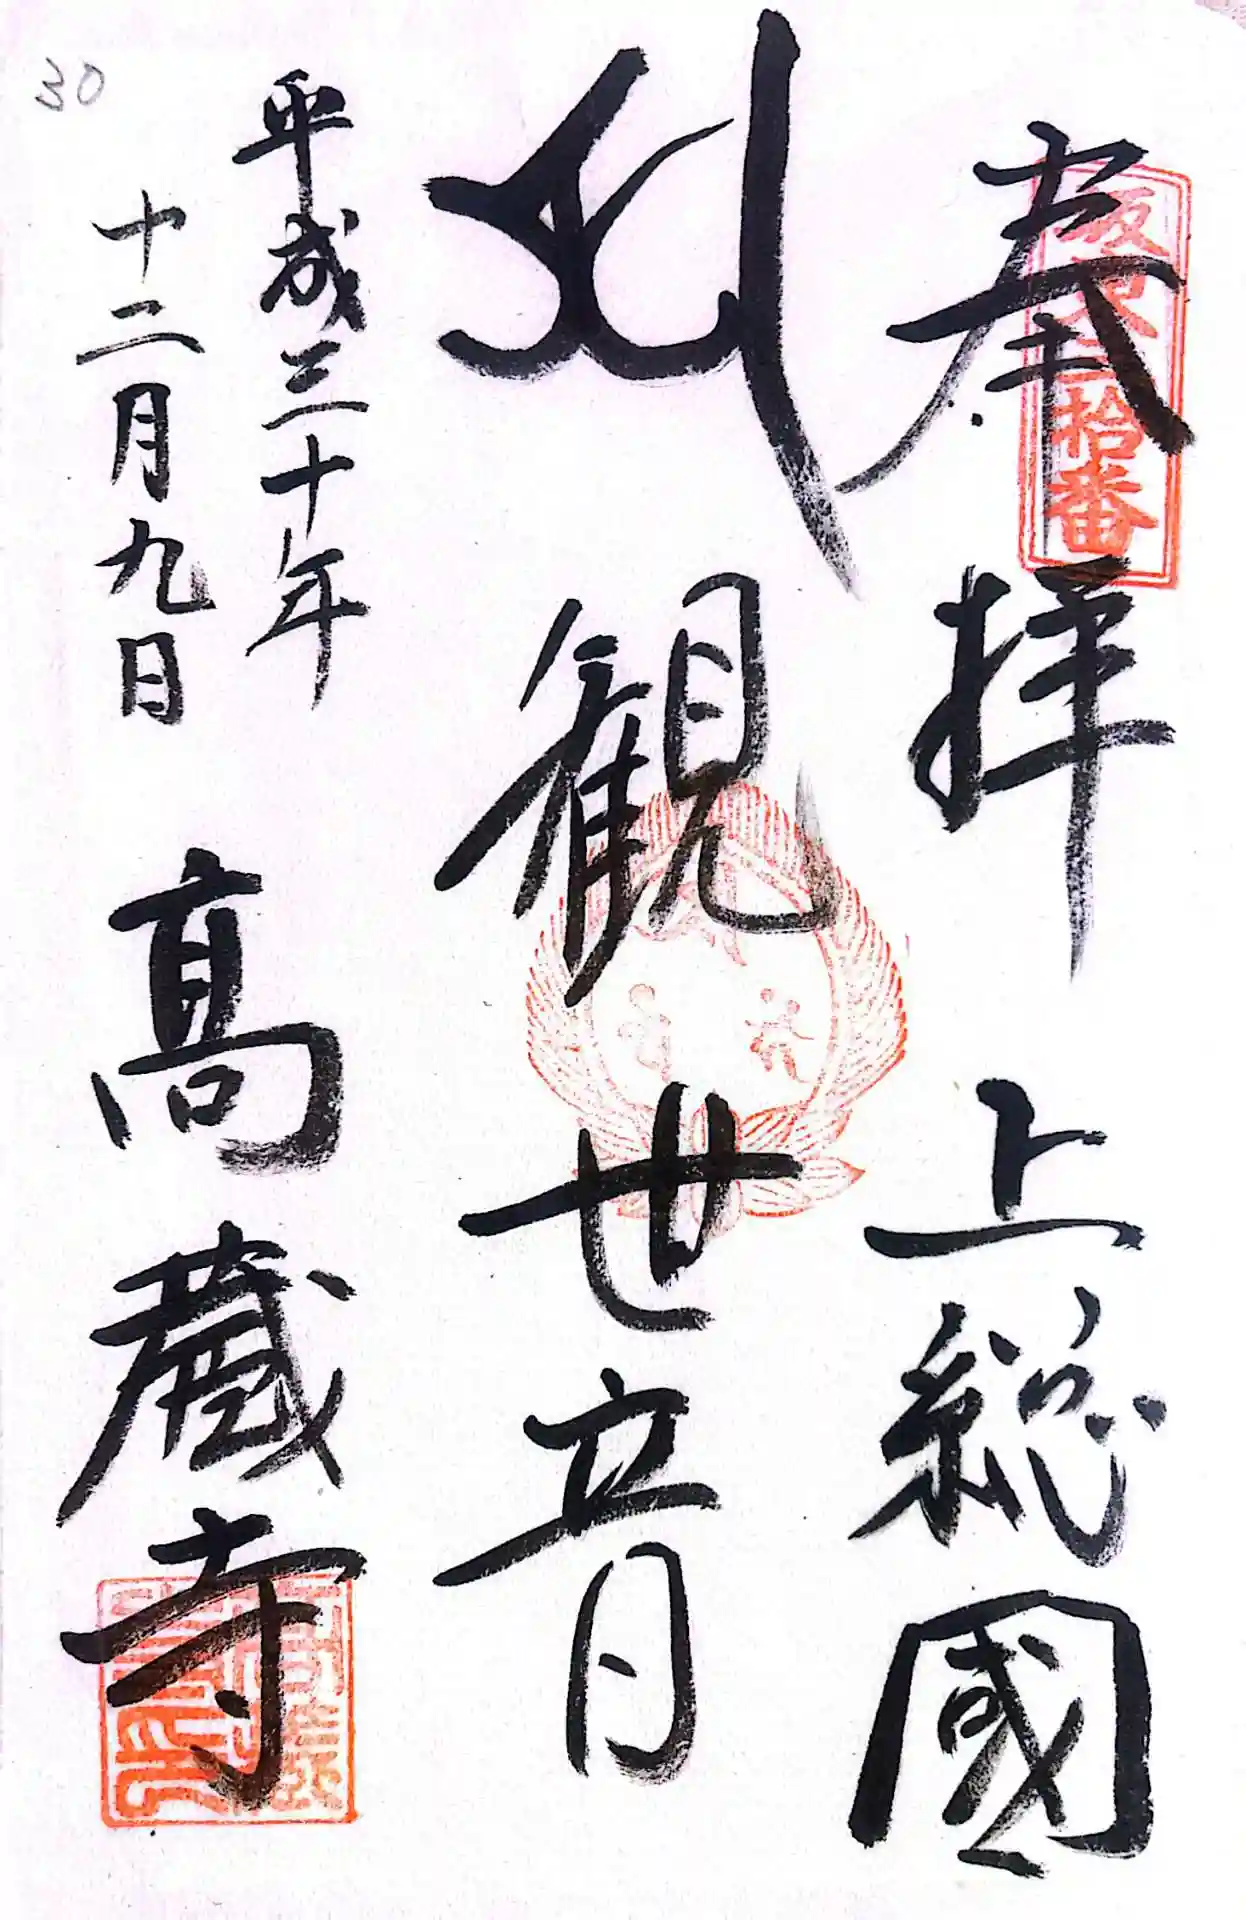 奉拝 上総國
坂東三拾番
観世音
平成三十年
十二月九日
高蔵寺
30